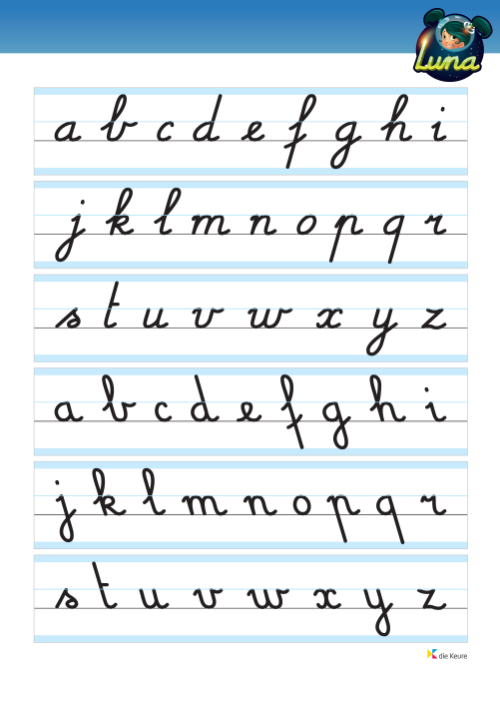 Luna
a b c d e f g h i
j k l m n o p q r
s t u v w x y z
a b c d e f g h i
j k l m n o p q r
s t u v w x y z
die Keure